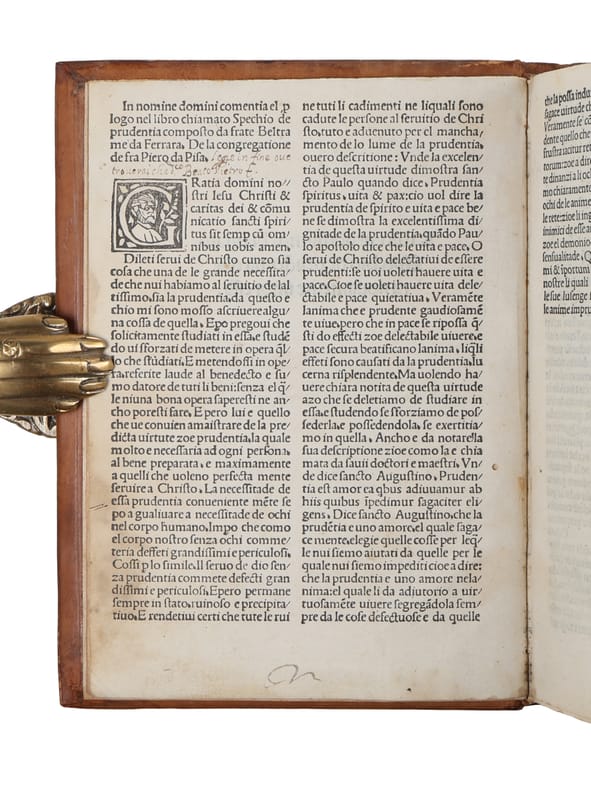 In nomine domini comentia el p
logo nel libro chiamato Spechio de
prudentia composto da frate Beltra
me da Ferrara. De la congregatione
de fra Piero da Pisa.
GRatia domini no/
stri Iesu Christi &
caritas dei & cõmu
nicatio sancti spiri/
tus sit semp cũ om/
nibus uobis amen.
Dileti serui de Christo cunzo sia
cosa che una de le grande necessita/
de che nui habiamo al seruitio de lal
tissimo, sia la prudentia, da questo e
chio mi sono mosso ascriuere algu
na cossa de quella. Epo pregoui che
solicitamente studiati in essa, e studẽ
do ui sforzati de metere in opera q̃l
lo che studiati. E metendossi in ope/
ra, referite laude al benedecto e su/
mo datore de tuti li beni: senza el q̃/
le niuna bona opera saperesti ne an/
cho poresti fare. E pero lui e quello
che ue conuien amaistrare de la pre/
dicta uirtute zoe prudentia, la quale
molto e necessaria ad ogni persona,
al bene preparata, e maximamente
a quelli che uoleno perfecta mente
seruire a Christo. La necessitade de
essa prudentia conueniente mẽte se
po a gualiuare a necessitade de ochi
nel corpo humano. Impo che como
el corpo nostro senza ochi comme/
teria deffeti grandissimi e periculosi.
Cossi p lo simile. Il seruo de dio sen/
za prudentia commete defecti gran
dissimi e periculosi, Epero permane
sempre in stato, ruinoso e precipita/
tiuo. E rendetiui certi che tute le rui
ne tuti li cadimenti ne liquali sono
cadute le persone al seruitio de Chri
sto, tuto e aduenuto per el mancha/
mento de lo lume de la prudentia,
ouero descritione: Vnde la excelen/
tia de questa uirtude dimostra san/
cto Paulo quando dice. Prudentia
spiritus, uita & pax: cio uol dire la
prudentia de spirito e uita e pace be/
ne se dimostra la excelentissima di/
gnitade de la prudentia, quãdo Pau/
lo apostolo dice che le uita e pace. O
serui de Christo delectatiui de essere
prudenti: se uoi uoleti hauere uita e
pace. Cioe se uoleti hauere uita dele/
ctabile e pace quietatiua. Veramẽte
lanima che e prudente gaudiosamẽ
te uiue, pero che in pace se ripossa q̃
sti do effecti zoe delectabile uiuere, e
pace secura beatificano lanima, liq̃li
effeti sono causati da la prudentia, lu
cerna risplendente. Ma uolendo ha/
uere chiara notita de questa uirtude
azo che se deletiamo de studiare in
essa, e studendo se sforziamo de pos/
sederla, e possedendola, se exertitia/
mo in quella. Ancho e da notare la
sua descriptione zioe como la e chia
mata da sauii doctori e maestri. Vn/
de dice sancto Augustino. Pruden/
tia est amor ea qbus adiuuamur ab
hiis quibus ĩpedimur sagaciter eli
gens. Dice sancto Augustino, che la
prudẽtia e uno amore, el quale saga/
ce mente, elegie quelle cosse per leq̃/
le nui siemo aiutati da quelle per le
quale nui siemo impediti cioe a dire:
che la prudentia e uno amore nela/
nima: el quale li da adiutorio a uir/
tuosamẽte uiuere segregãdola sem/
pre da le cose defectuose e da quelle